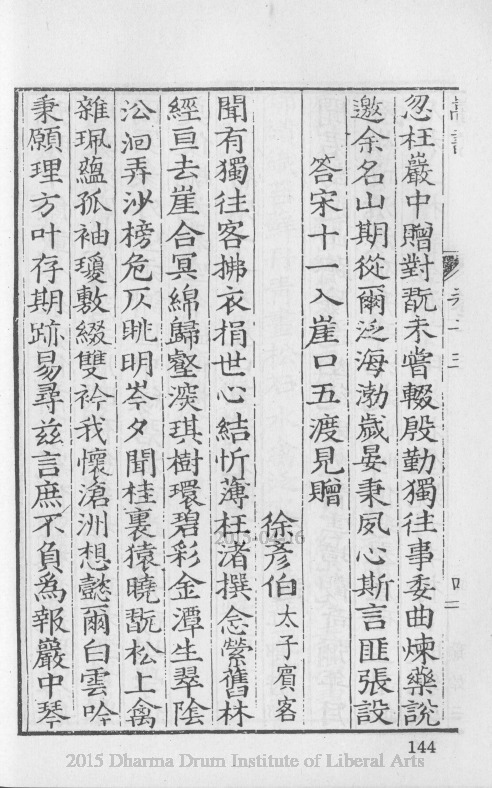 忽枉巖中贈對翫未嘗輟殷勤獨往事委曲煉藥說
邀余名山期從爾泛海渤歲晏秉夙心斯言匪張設
答宋十一入崖口五渡見贈
徐彥伯太子賓客
聞有獨往客拂衣捐世心結忻薄枉渚撰念縈舊林
經亘去崖合冥綿歸壑深琪樹環碧彩金潭生翠陰
沿洄弄沙榜危仄眺明岑夕聞桂裏猿曉翫松上禽
雜珮蘊孤袖瓊敷綴雙衿我懷滄洲想懿爾白雲吟
秉願理方叶存期跡易尋茲言庶不負為報巖中琴
144
2015 Dharma Drum Institute of Liberal Arts